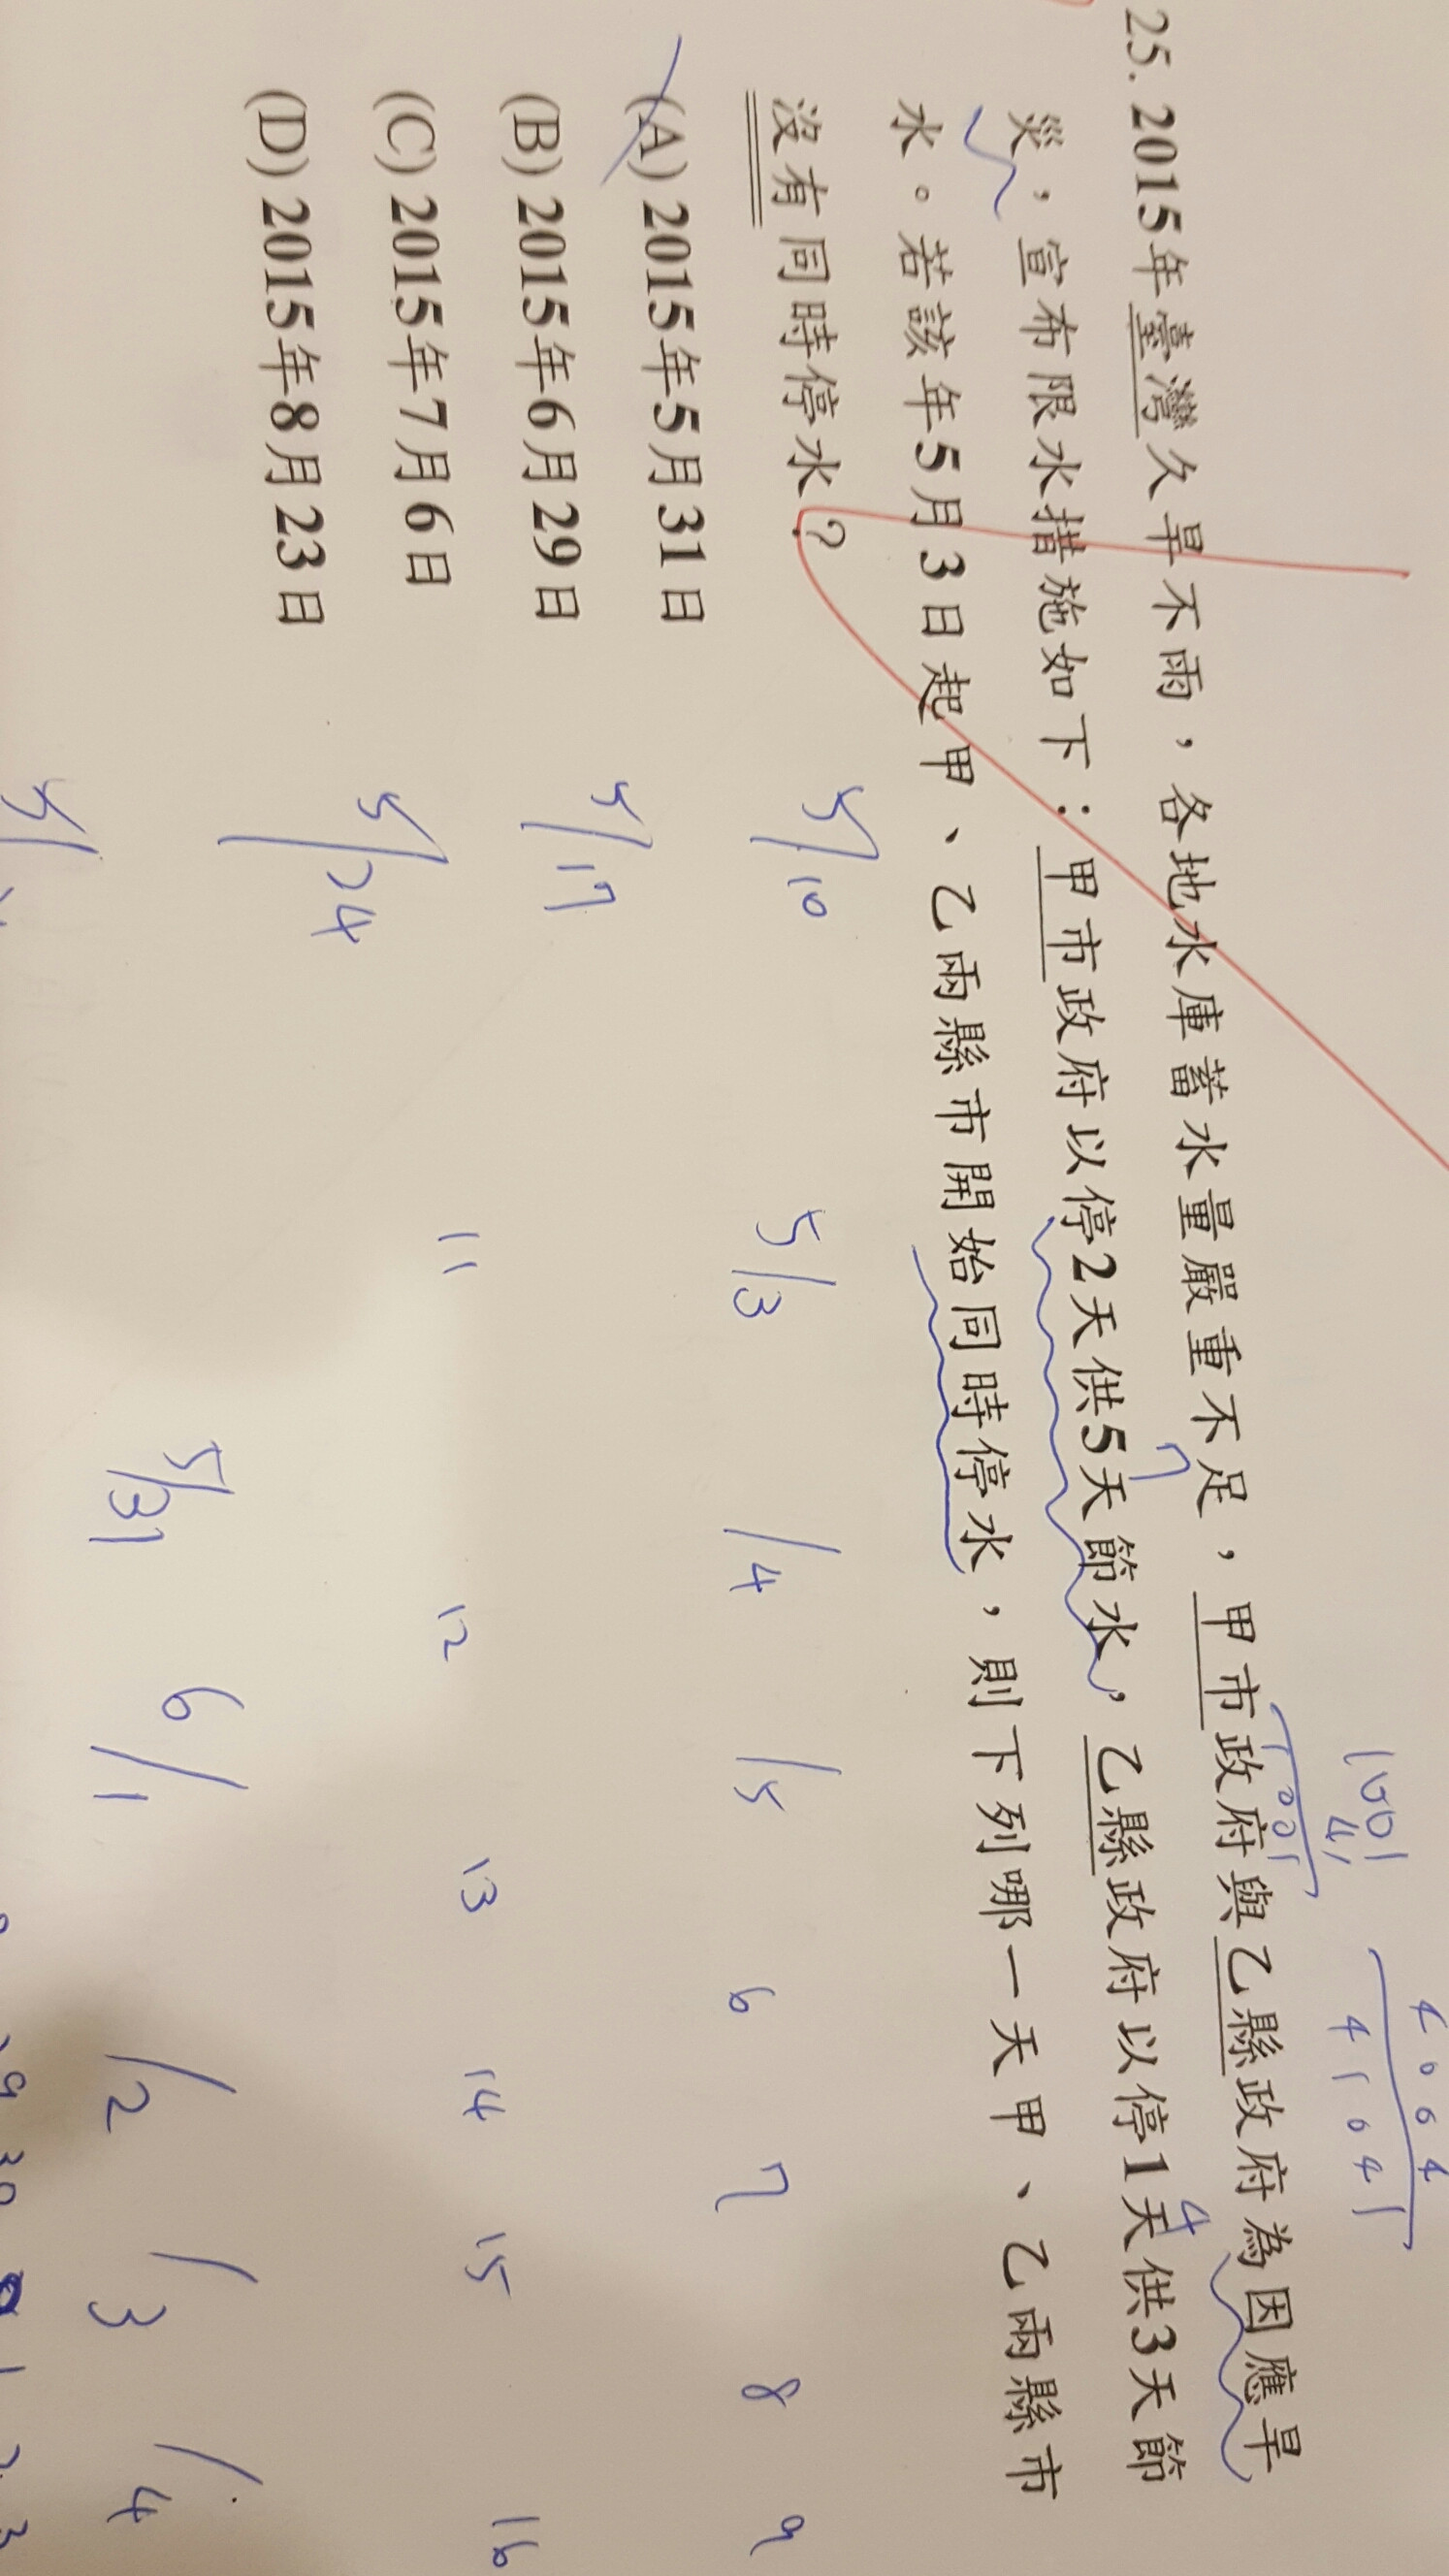 25. 2015年臺灣久旱不雨，各地水庫蓄水量嚴重不足，甲市政府與乙縣政府為因應旱
災，宣布限水措施如下：甲市政府以停2天供5天節水，乙縣政府以停1天供3天節
水。若該年5月3日起甲、乙兩縣市開始同時停水，則下列哪一天甲、乙兩縣市
沒有同時停水？
(A) 2015年5月31日
(B) 2015年6月29日
(C) 2015年7月6日
(D) 2015年8月23日
7
4
5/10
5/3 /4 /5 6 7 8 9
5/17
11 12 13 14 15 16
5/24
5/31 6/1 /2 /3 /4